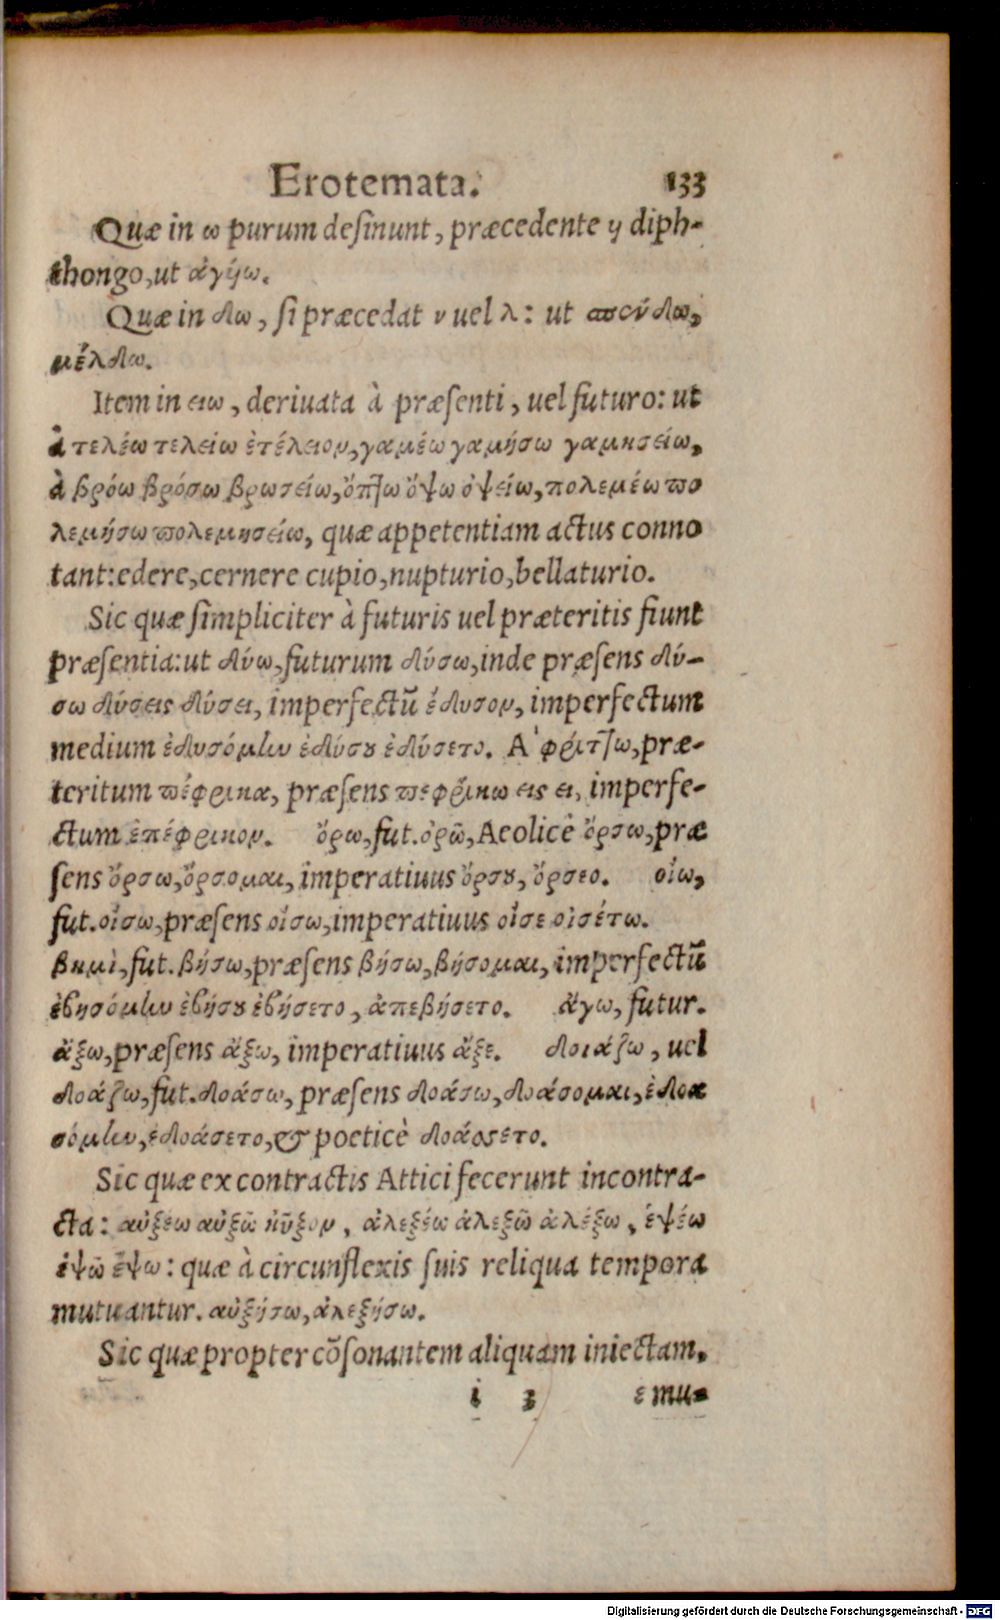 Erotemata. 133
Quæ in ω purum desinunt, præcedente ῃ diph-
thongo, ut ἀγῄω.
Quæ in δω, si præcedat ν uel λ: ut σπένδω,
μέλδω.
Item in ειω, deriuata à præsenti, uel futuro: ut
à τελέω τελείω ἐτέλειον, γαμέω γαμήσω γαμησείω,
à βρόω βρόσω βρωσείω, ὄπτω ὄψω ὀψείω, πολεμέω πο
λεμήσω πολεμησείω, quæ appetentiam actus conno
tant: edere, cernere cupio, nupturio, bellaturio.
Sic quæ simpliciter à futuris uel præteritis fiunt
præsentia: ut δύω, futurum δύσω, inde præsens δύ-
σω δύσεις δύσει, imperfectũ ἔδυσον, imperfectum
medium ἐδυσόμην ἐδύσου ἐδύσετο. A φρίττω, præ-
teritum πέφρικα, præsens πεφρίκω εις ει, imperfe-
ctum ἐπέφρικον. ὄρω, fut. ὀρῶ, Aeolicè ὄρσω, præ
sens ὄρσω, ὄρσομαι, imperatiuus ὄρσου, ὄρσεο. οἴω,
fut. οἴσω, præsens οἴσω, imperatiuus οἶσε οἰσέτω.
βημὶ, fut. βήσω, præsens βήσω, βήσομαι, imperfectũ
ἐβησόμην ἐβήσου ἐβήσετο, ἀπεβήσετο. ἄγω, futur.
ἄξω, præsens ἄξω, imperatiuus ἄξε. δοιάζω, uel
δοάζω, fut. δοάσω, præsens δοάσω, δοάσομαι, ἐδοα
σόμην, ἐδοάσετο, & poeticè δοάσσετο.
Sic quæ ex contractis Attici fecerunt incontra-
cta: αὐξέω αὐξῶ ηὖξον, ἀλεξέω ἀλεξῶ ἀλέξω, ἑψέω
ἑψῶ ἕψω: quæ à circunflexis suis reliqua tempora
mutuantur. αὐξήσω, ἀλεξήσω.
Sic quæ propter cõsonantem aliquam iniectam,
i 3 ε mu-
Digitalisierung gefördert durch die Deutsche Forschungsgemeinschaft - DFG